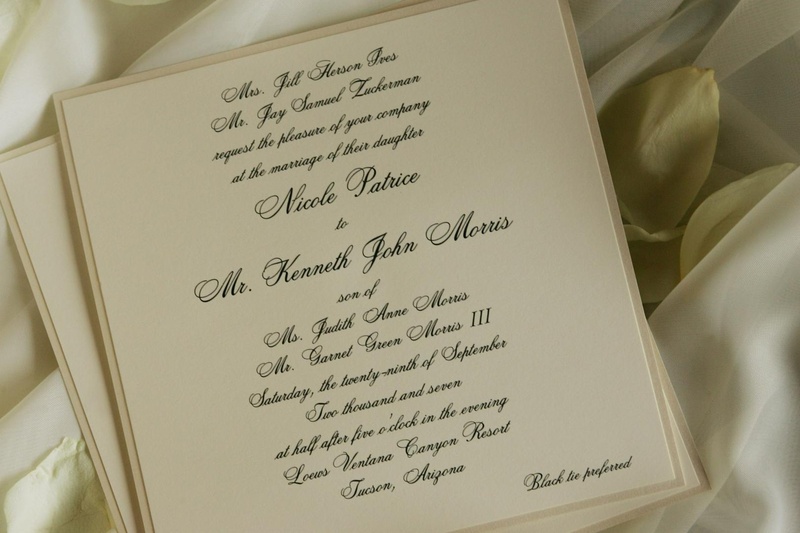 Mrs. Jill Herson Ives
Mr. Jay Samuel Zuckerman
request the pleasure of your company
at the marriage of their daughter
Nicole Patrice
to
Mr. Kenneth John Morris
son of
Ms. Judith Anne Morris
Mr. Garnet Green Morris III
Saturday, the twenty-ninth of September
Two thousand and seven
at half after five o'clock in the evening
Loews Ventana Canyon Resort
Tucson, Arizona
Black tie preferred